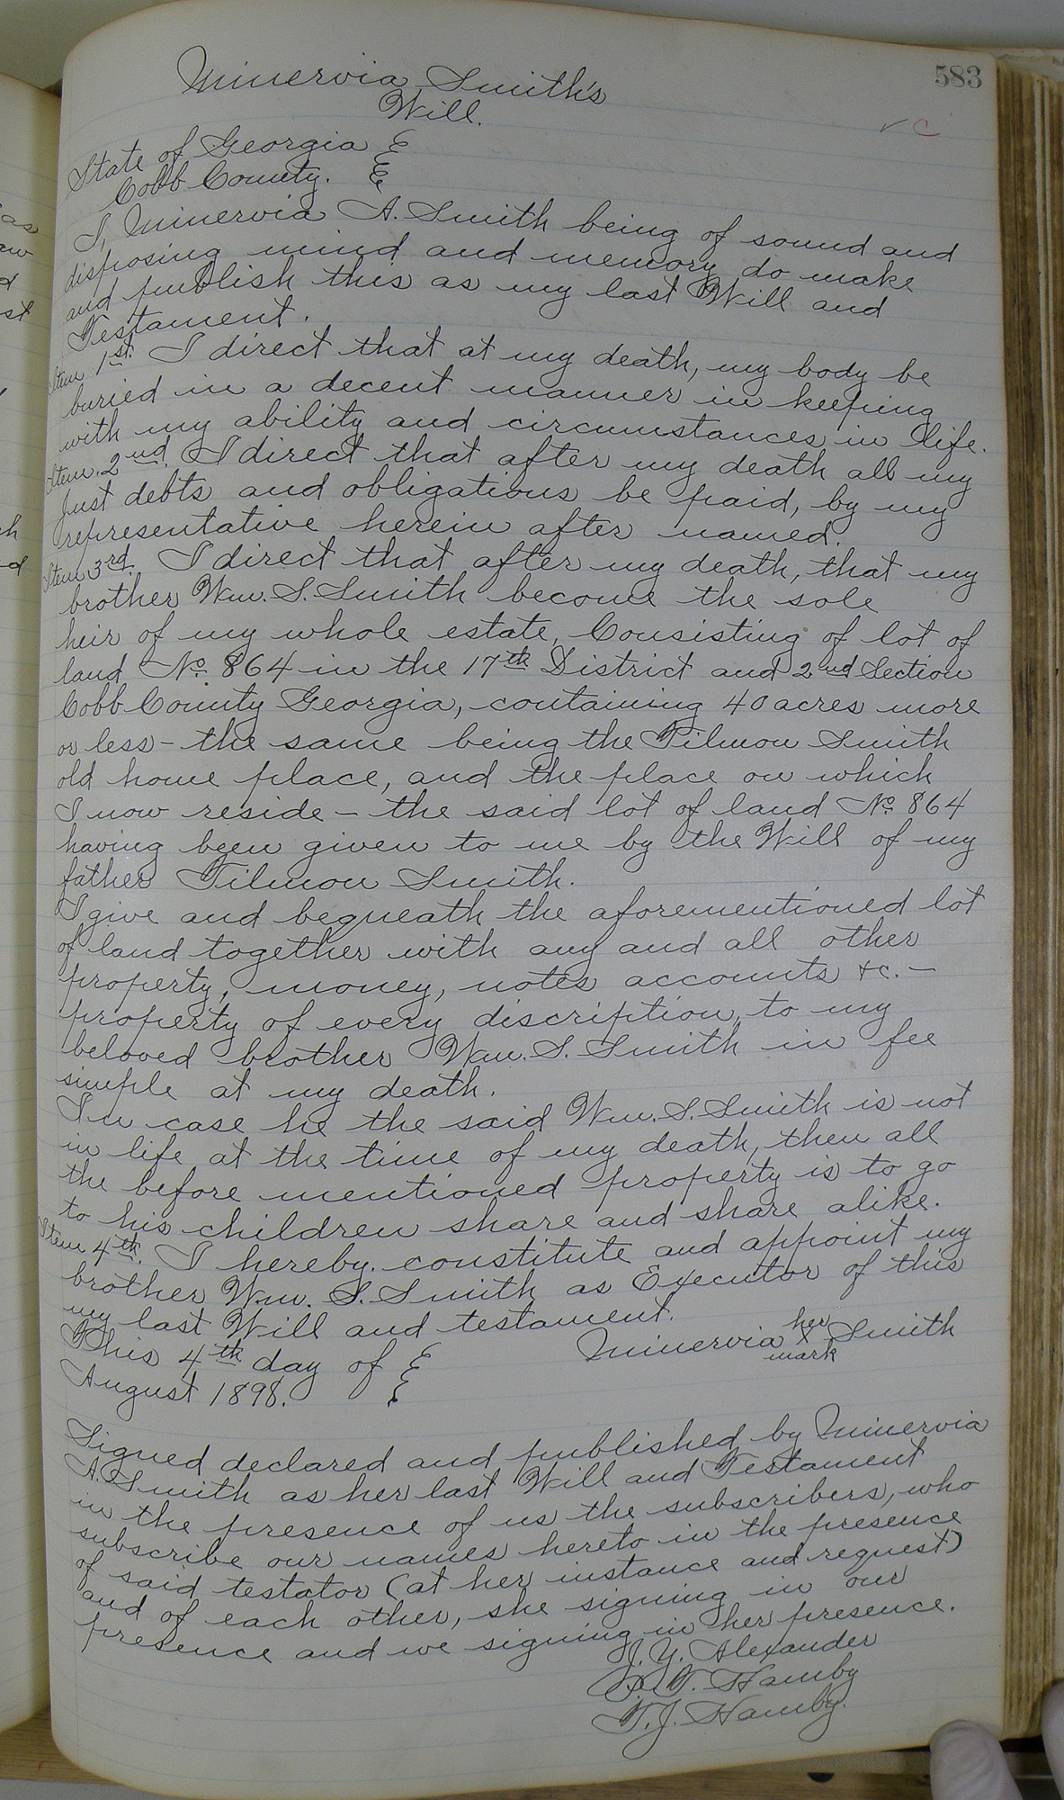 583
Minervia Smith's
Will.
State of Georgia
Cobb County.
I, Minervia A. Smith being of sound and
disposing mind and memory do make
and publish this as my last Will and
Testament.
Item 1st. I direct that at my death, my body be
buried in a decent manner in keeping
with my ability and circumstances in life.
Item. 2nd. I direct that after my death all my
just debts and obligations be paid, by my
representative herein after named.
Item 3rd. I direct that after my death, that my
brother Wm. S. Smith become the sole
heir of my whole estate, Consisting of lot of
land No. 864 in the 17th District and 2nd Section
Cobb County Georgia, containing 40 acres more
or less - the same being the Tilmon Smith
old home place, and the place on which
I now reside - the said lot of land No. 864
having been given to me by the Will of my
father Tilmon Smith.
I give and bequeath the aforementioned lot
of land together with any and all other
property, money, notes accounts &c. -
property of every discription, to my
beloved brother Wm. S. Smith in fee
simple at my death.
In case he the said Wm. S. Smith is not
in life at the time of my death, then all
the before mentioned property is to go
to his children share and share alike.
Item 4th. I hereby constitute and appoint my
brother Wm. S. Smith as Executor of this
my last Will and testament.
This 4th day of
August 1898.
Minervia her x mark Smith
Signed declared and published by Minervia
A. Smith as her last Will and Testament
in the presence of us the subscribers, who
subscribe our names hereto in the presence
of said testator (at her instance and request)
and of each other, she signing in our
presence and we signing in her presence.
J. Y. Alexander
T. Hamby
T. J. Hamby.